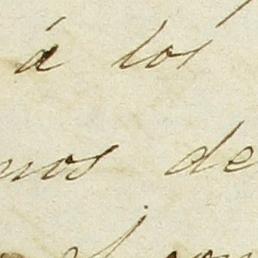 á los
nos de